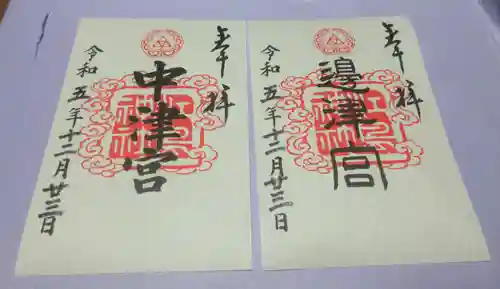 奉拝
中津宮
令和五年十二月廿三日
奉拝
邊津宮
令和五年十二月廿三日